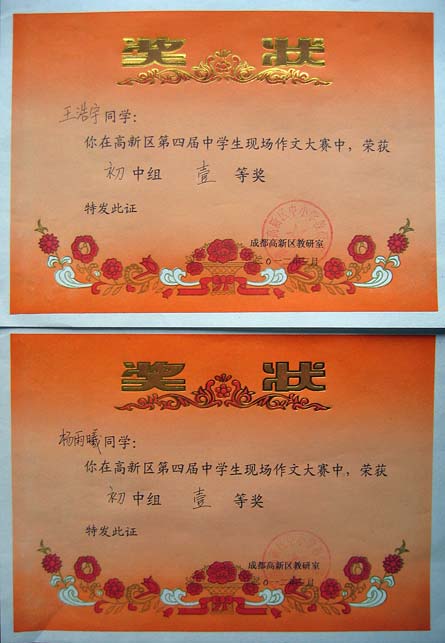 奖 状
王浩宇同学:
你在高新区第四届中学生现场作文大赛中，荣获
初中组 壹 等奖
特发此证
成都高新区教研室
二0一二年 月
奖 状
杨雨曦同学:
你在高新区第四届中学生现场作文大赛中，荣获
初中组 壹 等奖
特发此证
成都高新区教研室
二0一二年 月